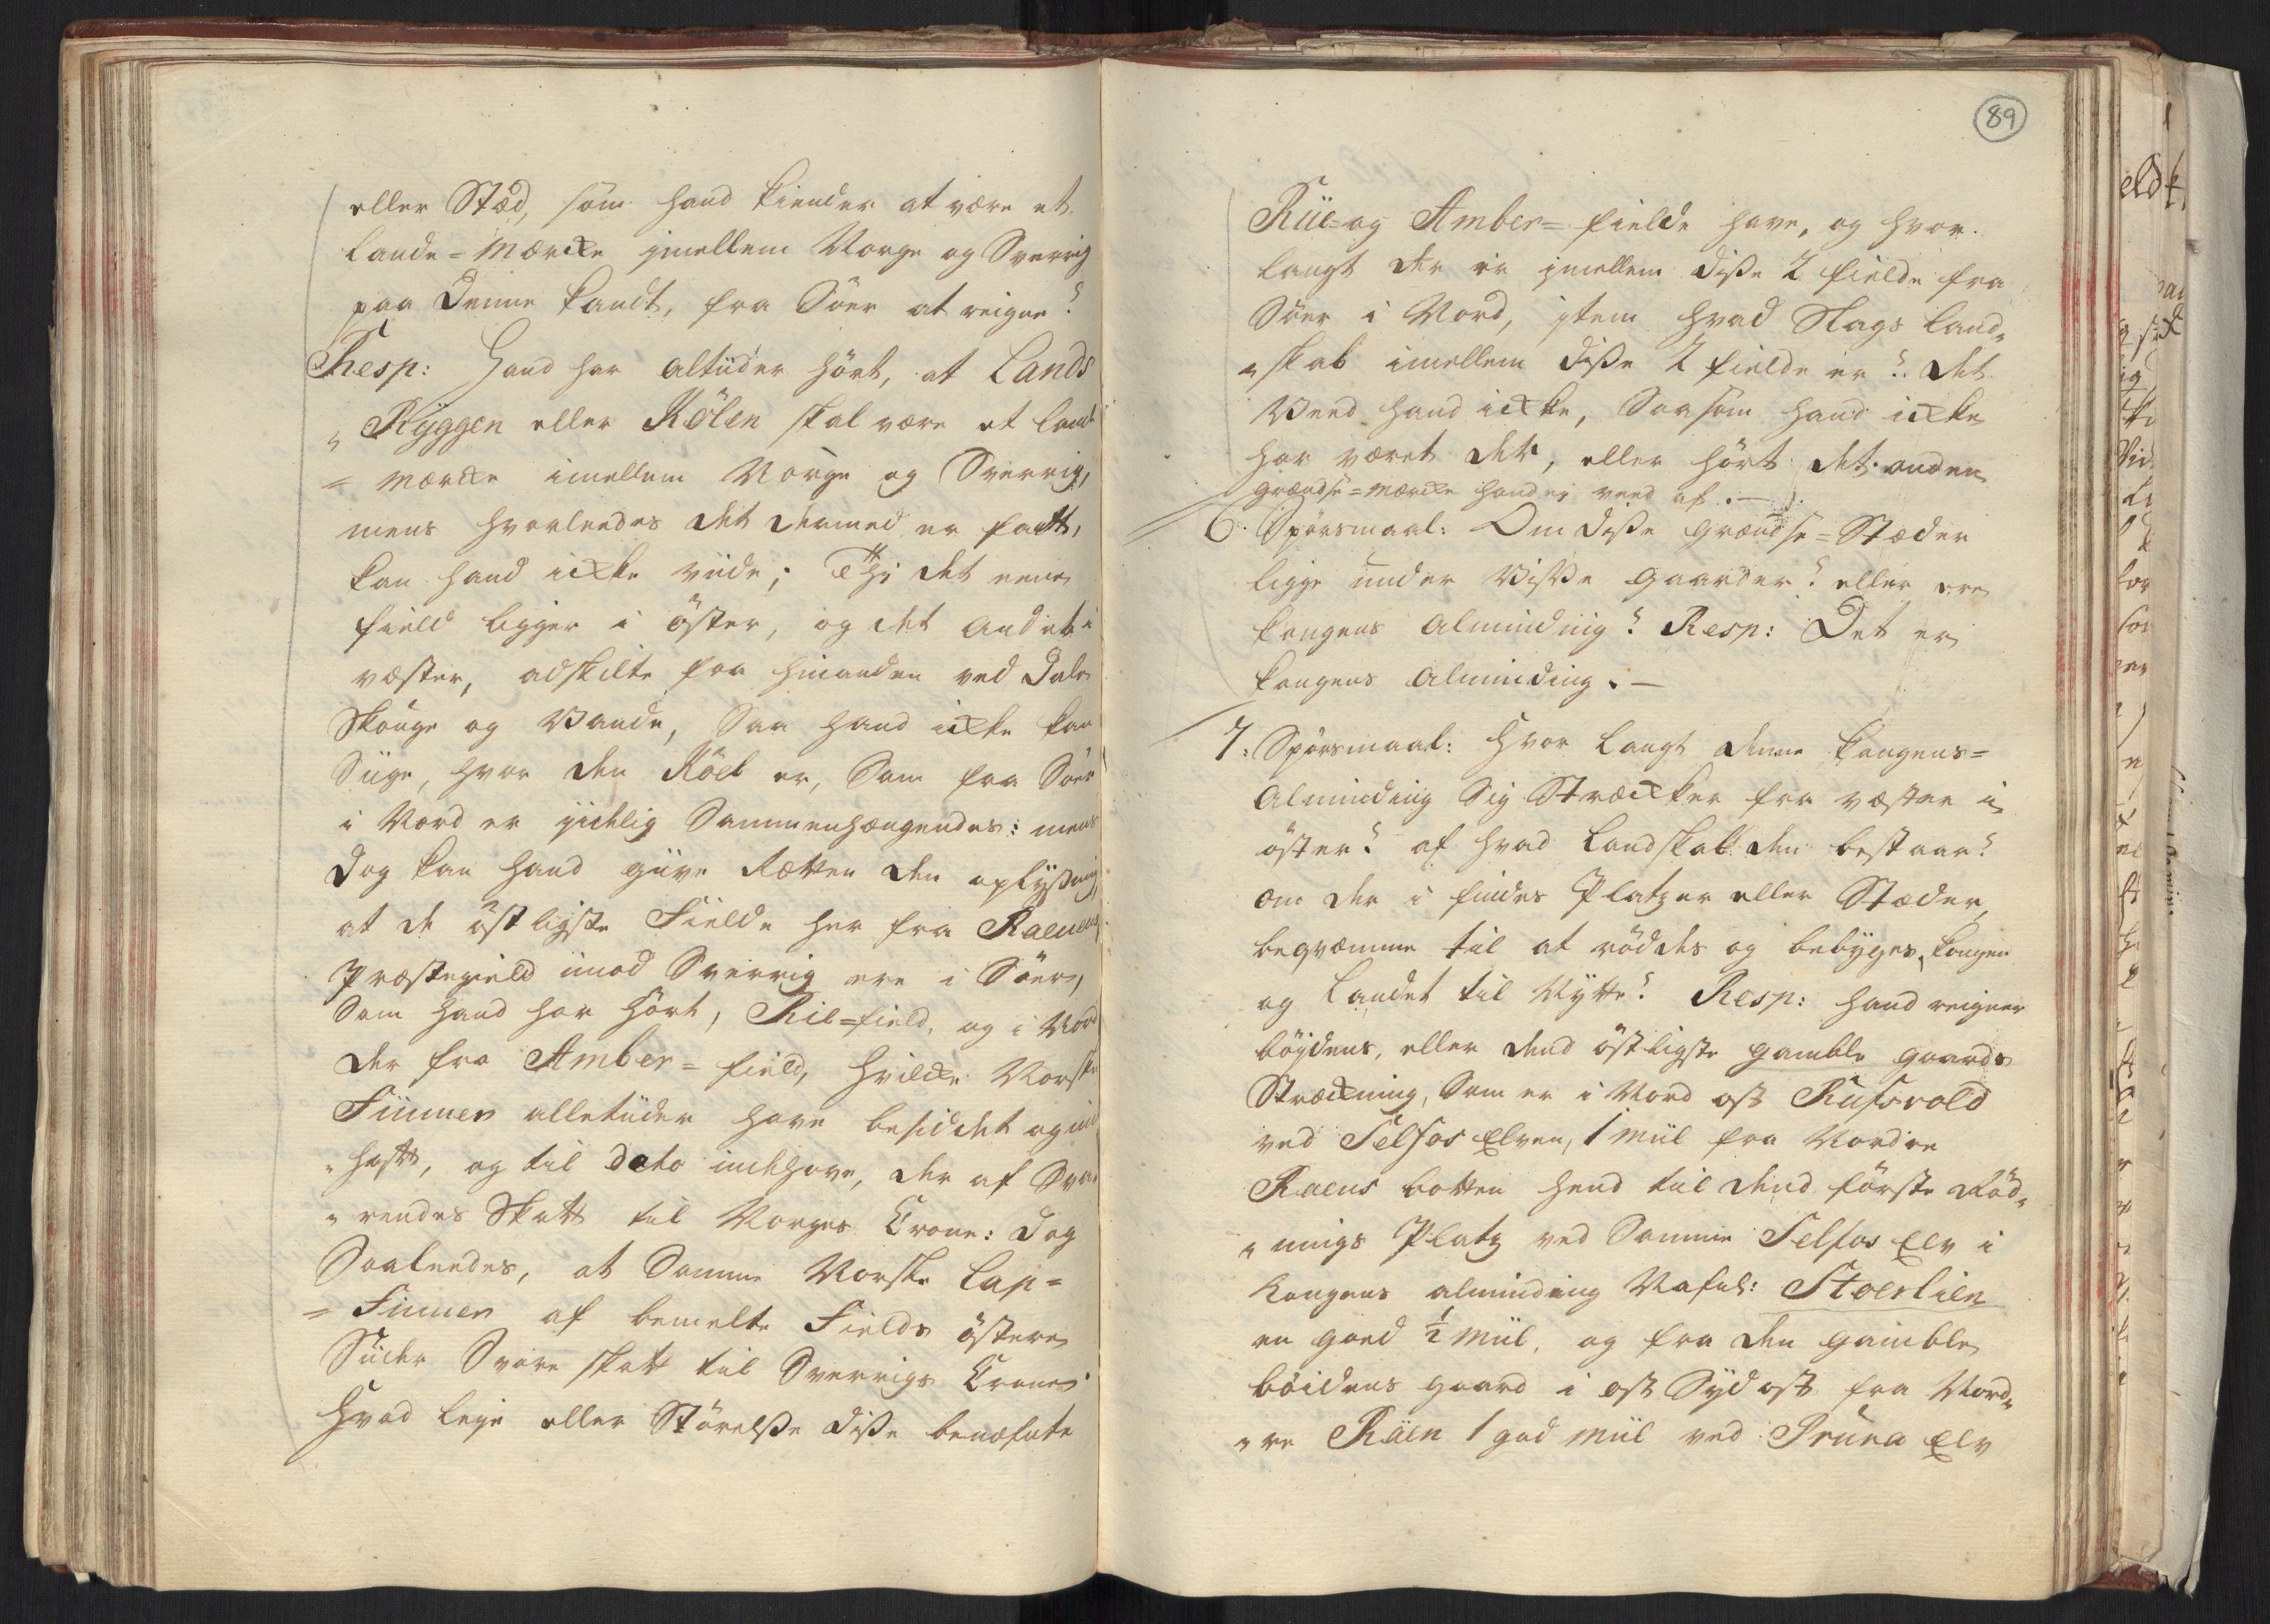 eller Stæd, som hand kiender at være et
Lande=Mærcke jmellem Norge og Sverrig
paa denne Kandt, fra Söer at reigne?
Resp: Hand har altiider hört, at Lands
„Ryggen eller Kölen skal være et land
=Mærcke imellem Norge og Sverrig,
mens hvorleedes det dermed er fatt,
kan hand icke viide; Thi det eene
field ligger i öster, og det andet i
væster, adskilte fra hinanden ved Dale
Skouge og Vande, Saa hand icke kan
Siige, hvor den Köel er, Som fra Söer
i Nord er jidelig Sammenhængendes: mens
Dog kan hand giive Rætten den oplysning
at de östligste Fielde her fra Raenens
Præstegield imod Sverrig ere i Söer,
Som hand har hört, Rie=field, og i Nord
der fra Amber=field, hvilcke Norske
Finner alletiider have besiddet og ind
„haft, og til dato indehave, der af Sva
„rendes Skatt til Norges Crone: Dog
Saaleedes, at Samme Norske Lap=
=Finner af bemelte Fields östere
Siide Svare skatt til Sverrigs Crone
Hvad leye eller Störelsse disse benæfnte
89
Rüe= og Amber=fielde have, og hvor
langt der er jmellem disse 2 fielde fra
Söer i Nord, jtem hvad Slags Land„
„skab imellem disse 2 fielde er? det
Veed hand icke, Saasom hand icke
har været der, eller hört det. anden
grændse=mærcke hand ej veed af.—
6. Spörsmaal: Om disse grændse=Stæder
ligge under Visse gaarder? eller ere
kongens Alminding? Resp: Det er
kongens Alminding.—
7: Spörsmaal: Hvor langt denne kongens=
Alminding Sig Stræcker fra væster i
öster? af hvad Landskab den bestaar?
om der i findes Platzer eller Stæder,
beqvæmme til at röddes og bebyges, kongen
og Landet til Nytte? Resp: hand reigner
böydens, eller dend östligste gamble gaards
Stræckning, Som er i Nord ost Rusvold
ved Selfos Elven, 1 Miil fra Nordre
Raens botten hend til dend förste Röd„
„nings Platz ved Samme Selfos Elv i
Kongens alminding Nafnl: Stoerlien
en goed ½ Miil, og fra den gamble
böidens gaard i ost Sydost fra Nord„
„re Räen 1 god Miil ved Pruna Elv